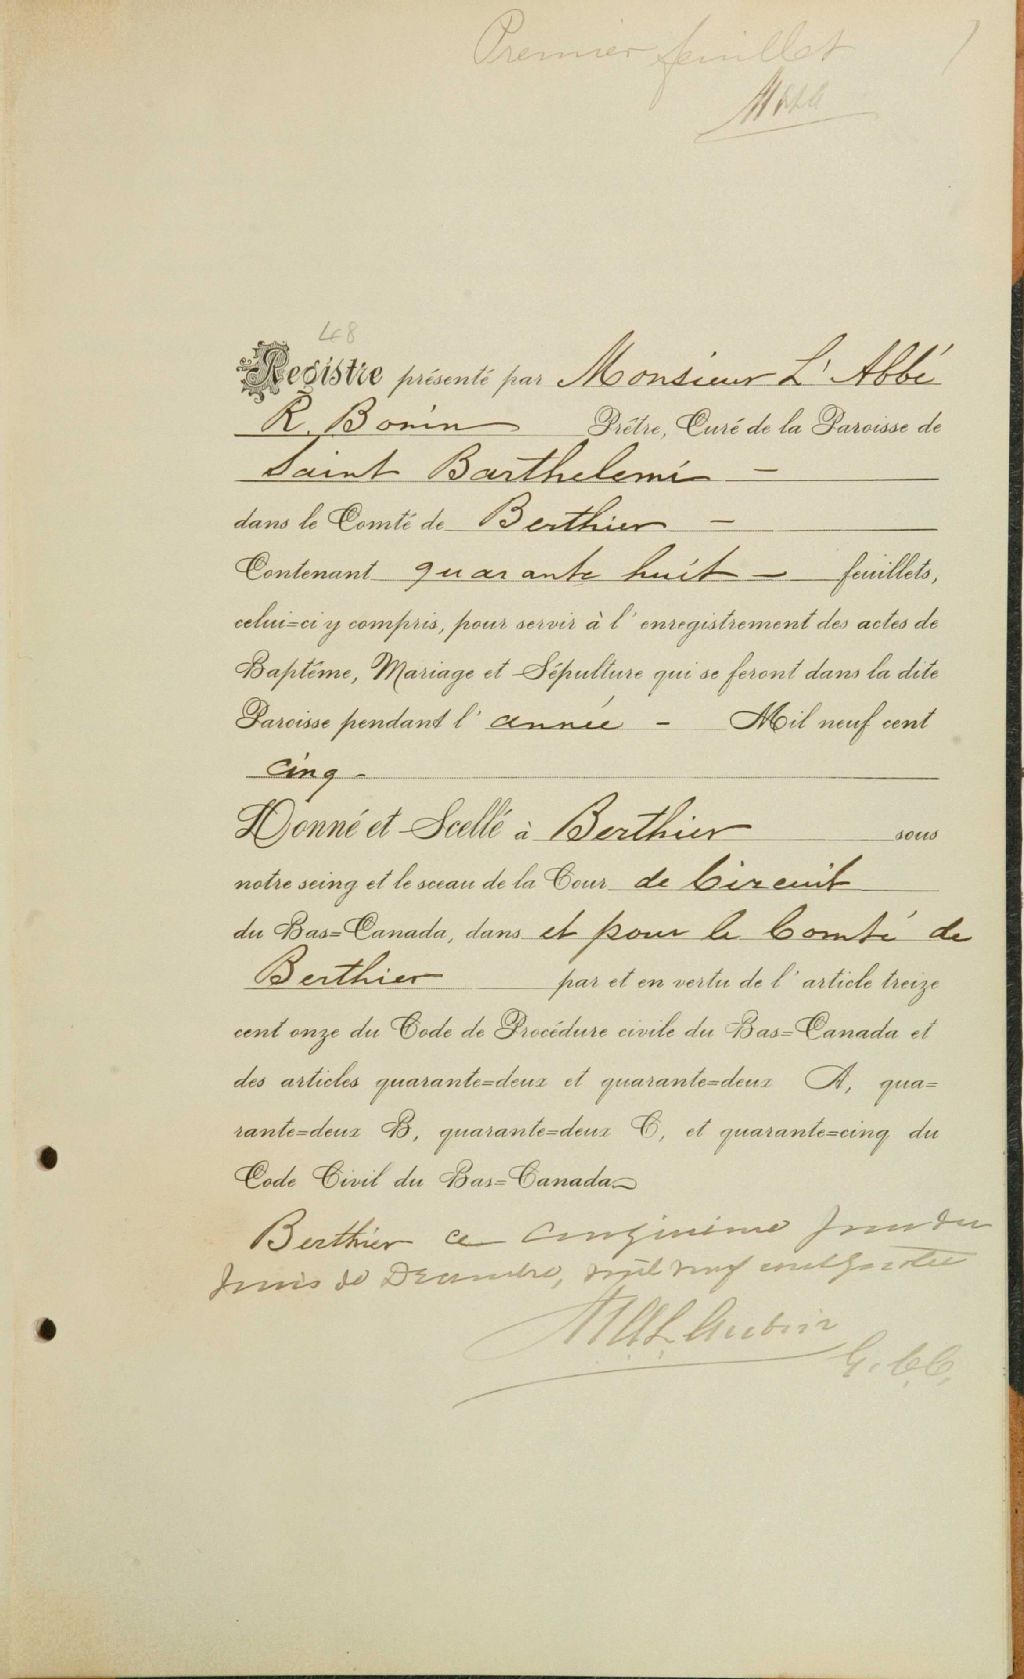 Premier feuillet
48
Registre présenté par Monsieur L'Abbé
R. Bonin Prêtre, Curé de la Paroisse de
Saint Barthelemi -
dans le Comté de Berthier -
Contenant quarante huit - feuillets,
celui=ci y compris, pour servir à l'enregistrement des actes de
Baptême, Mariage et Sépulture qui se feront dans la dite
Paroisse pendant l'année - Mil neuf cent
cinq -
Donné et Scellé à Berthier sous
notre seing et le sceau de la Cour de Circuit
du Bas=Canada, dans et pour le Comté de
Berthier par et en vertu de l'article treize
cent onze du Code de Procédure civile du Bas=Canada et
des articles quarante=deux et quarante=deux A, qua=
rante=deux B, quarante=deux C, et quarante=cinq du
Code Civil du Bas=Canada
Berthier ce jour du
mois de Decembre, mil neuf cent quatre
Aubin
G. C. C.